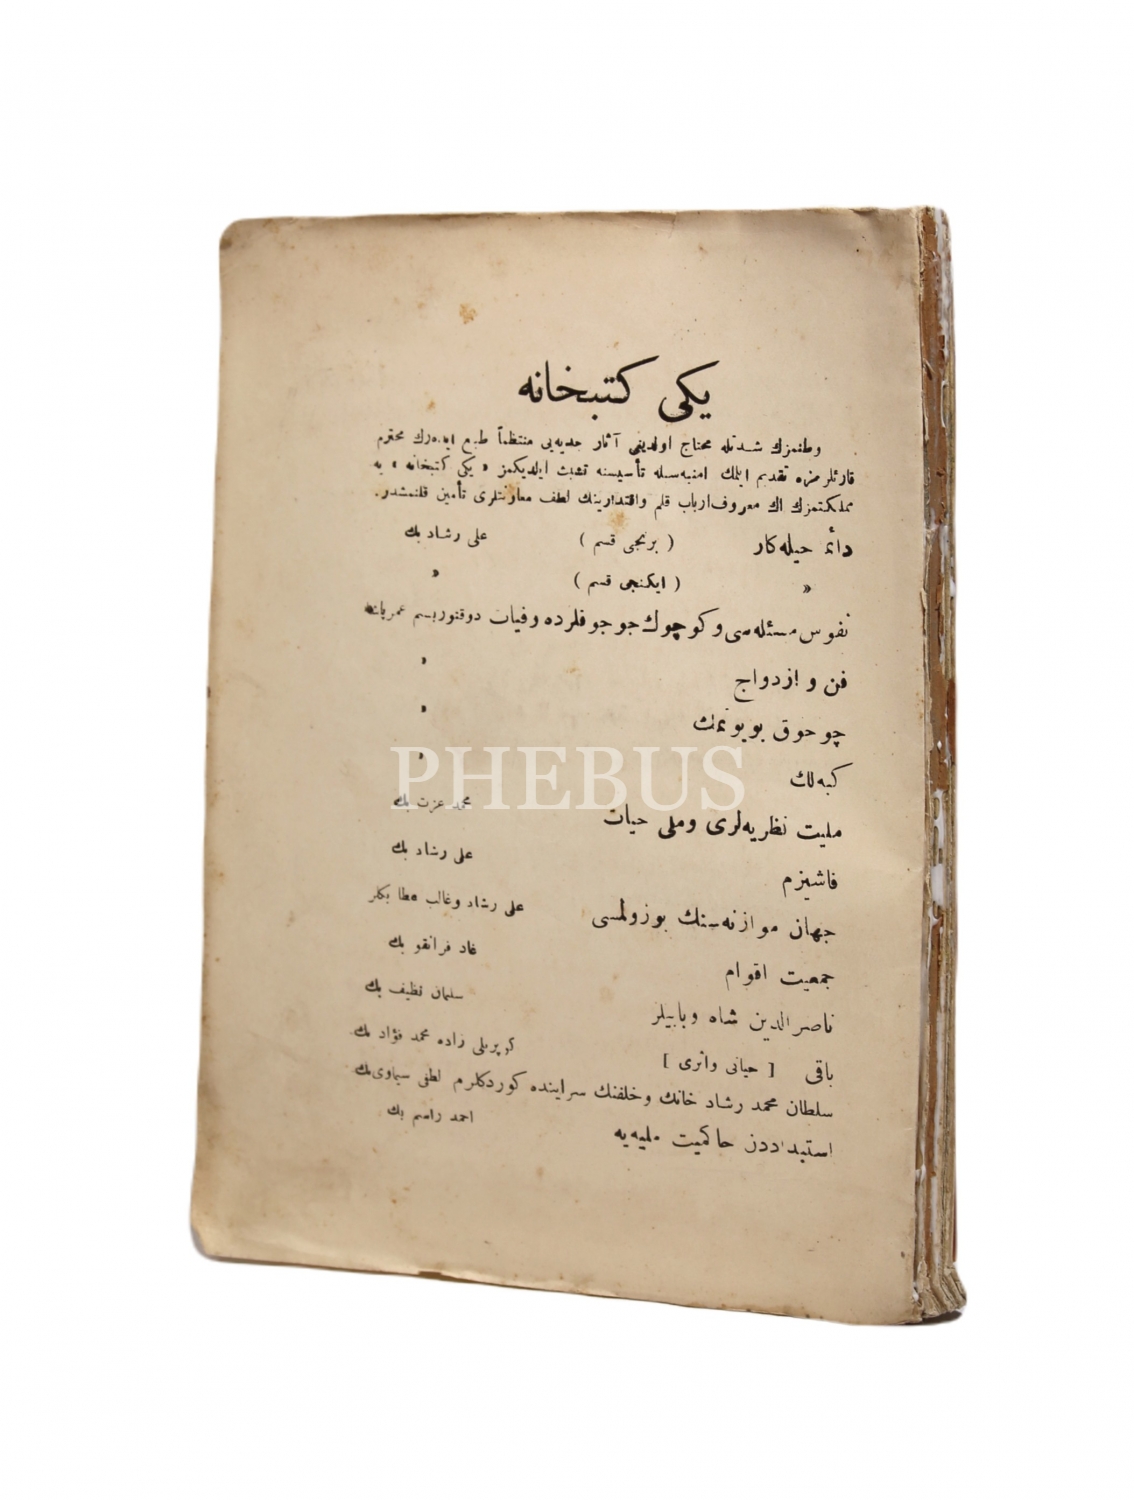 یكی كتبخانه
وطنمزك شدتله محتاج اولدیغی آثار جدیه‌یی منتظماً طبع ایده‌رك محترم
قارئلرمزه تقدیم ایلمك امنیه‌سیله تأسیسنه تشبث ایلدیكمز « یكی كتبخانه » یه
مملكتمزك اك معروف ارباب قلم واقتدارینك لطف معاونتلری تأمین قلنمشدر.
دائما حیله‌كار ( برنجی قسم ) علی رشاد بك
« ( ایكنجی قسم ) «
نفوس مسئله‌سی وكوچوك جوجوقلرده وفیات دوقتور بسیم عمر پاشا
فن و ازدواج «
چوجوق بویوتمك «
كبه‌لك «
PHEBUS
ملیت نظریه‌لری وملی حیات محمد عزت بك
فاشیزم علی رشاد بك
جهان موازنه‌سنك بوزولمسی علی رشاد وغالب عطا بكلر
جمعیت اقوام غاد فرانقو بك
ناصرالدین شاه وبابیلر سلیمان نظیف بك
باقی [ حیاتی واثری ] كوپریلی زاده محمد فؤاد بك
سلطان محمد رشاد خانك وخلفنك سراینده كوردكلرم لطفی سیماوی بك
استبداددن حاكمیت ملیه‌یه احمد راسم بك